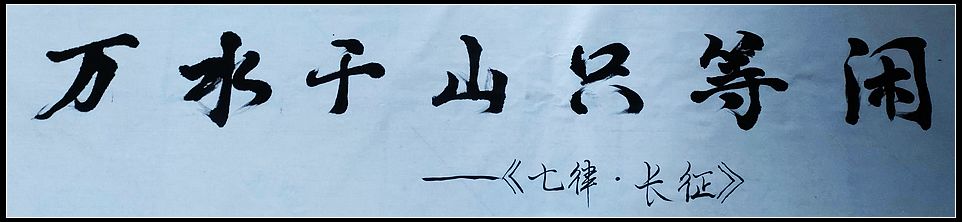 万水千山只等闲
——《七律·长征》